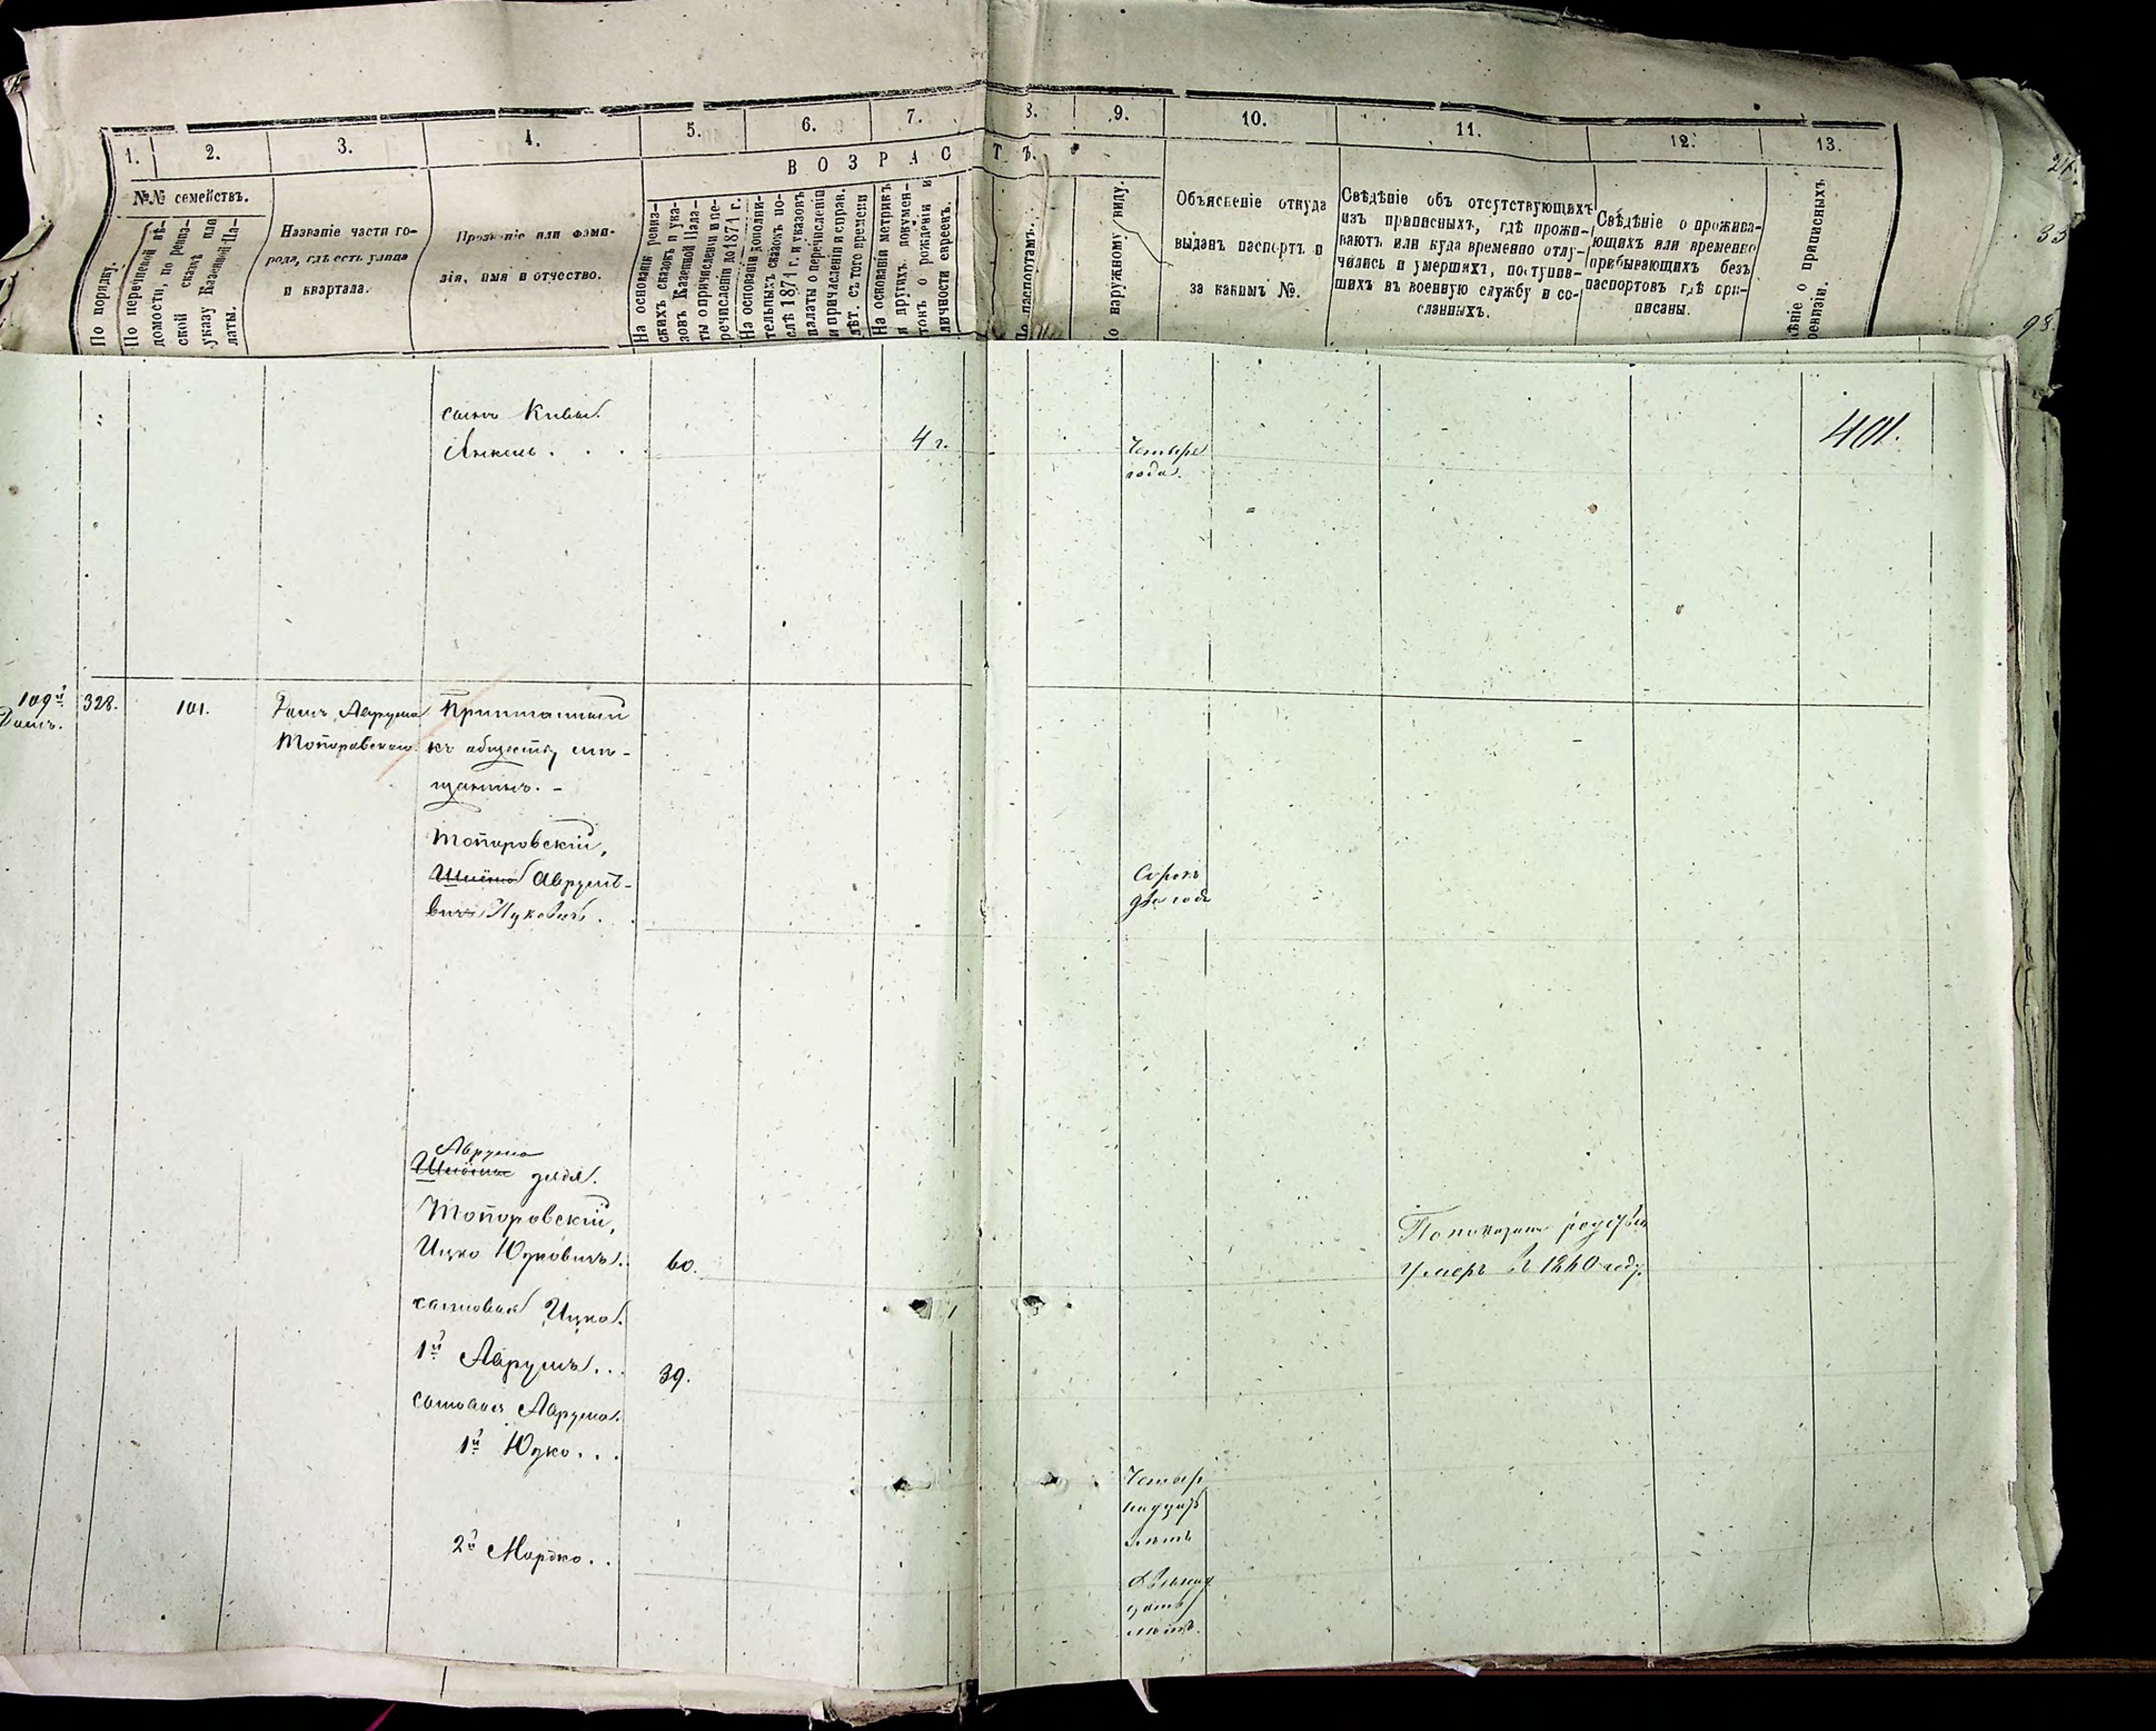 1.
2.
3.
4.
5.
6.
7.
8.
9.
10.
11.
12.
13.
№№ семействъ.
ВОЗРАСТЪ.
По порядку.
По перечневой вѣ-
домости, по ревиз-
ской сказкѣ или
указу Казенной Па-
латы.
Названіе части го-
рода, гдѣ есть улица
и квартала.
Прозваніе или фами-
лія, имя и отчество.
На основаніи ревиз-
скихъ сказокъ и ука-
зовъ Казенной Пала-
ты о причисленіи и пе-
речисленіи до 1871 г.
На основаніи дополни-
тельныхъ сказокъ по-
слѣ 1871 г. и указовъ
палаты о перечисленіи
и причисленіи и справ.
лѣт. съ того времени
На основаніи метрикъ
и другихъ докумен-
товъ о рожденіи и
личности евреевъ.
По паспортамъ.
По наружному виду.
Объясненіе откуда
выданъ паспортъ и
за какимъ №.
Свѣдѣніе объ отсутствующихъ
изъ приписныхъ, гдѣ прожи-
ваютъ или куда временно отлу-
чились и умершихъ, поступив-
шихъ въ военную службу и со-
сланныхъ.
Свѣдѣніе о прожива-
ющихъ или временно
прибывающихъ безъ
паспортовъ гдѣ при-
писаны.
ѣніе о приписныхъ
ревизіи.
сынъ Кивы
Анкель . . .
4 г.
Четыре
года.
401.
109й
Домъ.
328.
101.
Домъ Аврума
Топоровскаго
Приписанный
къ обществу мѣ-
щанинъ. -
Топоровскій,
Аврумъ-
Сорокъ
два года
Аврума
дядя.
Топоровскій,
Ицко Юдковичъ.
60.
По показанію
умеръ въ 1860 году.
сыновья Ицка.
1й Аврумъ. . .
39.
сыновья Аврума.
1й Юдко. . .
Четыр
надцать
лѣтъ
2й Мордко. .
Двѣнад
цать
лѣтъ.